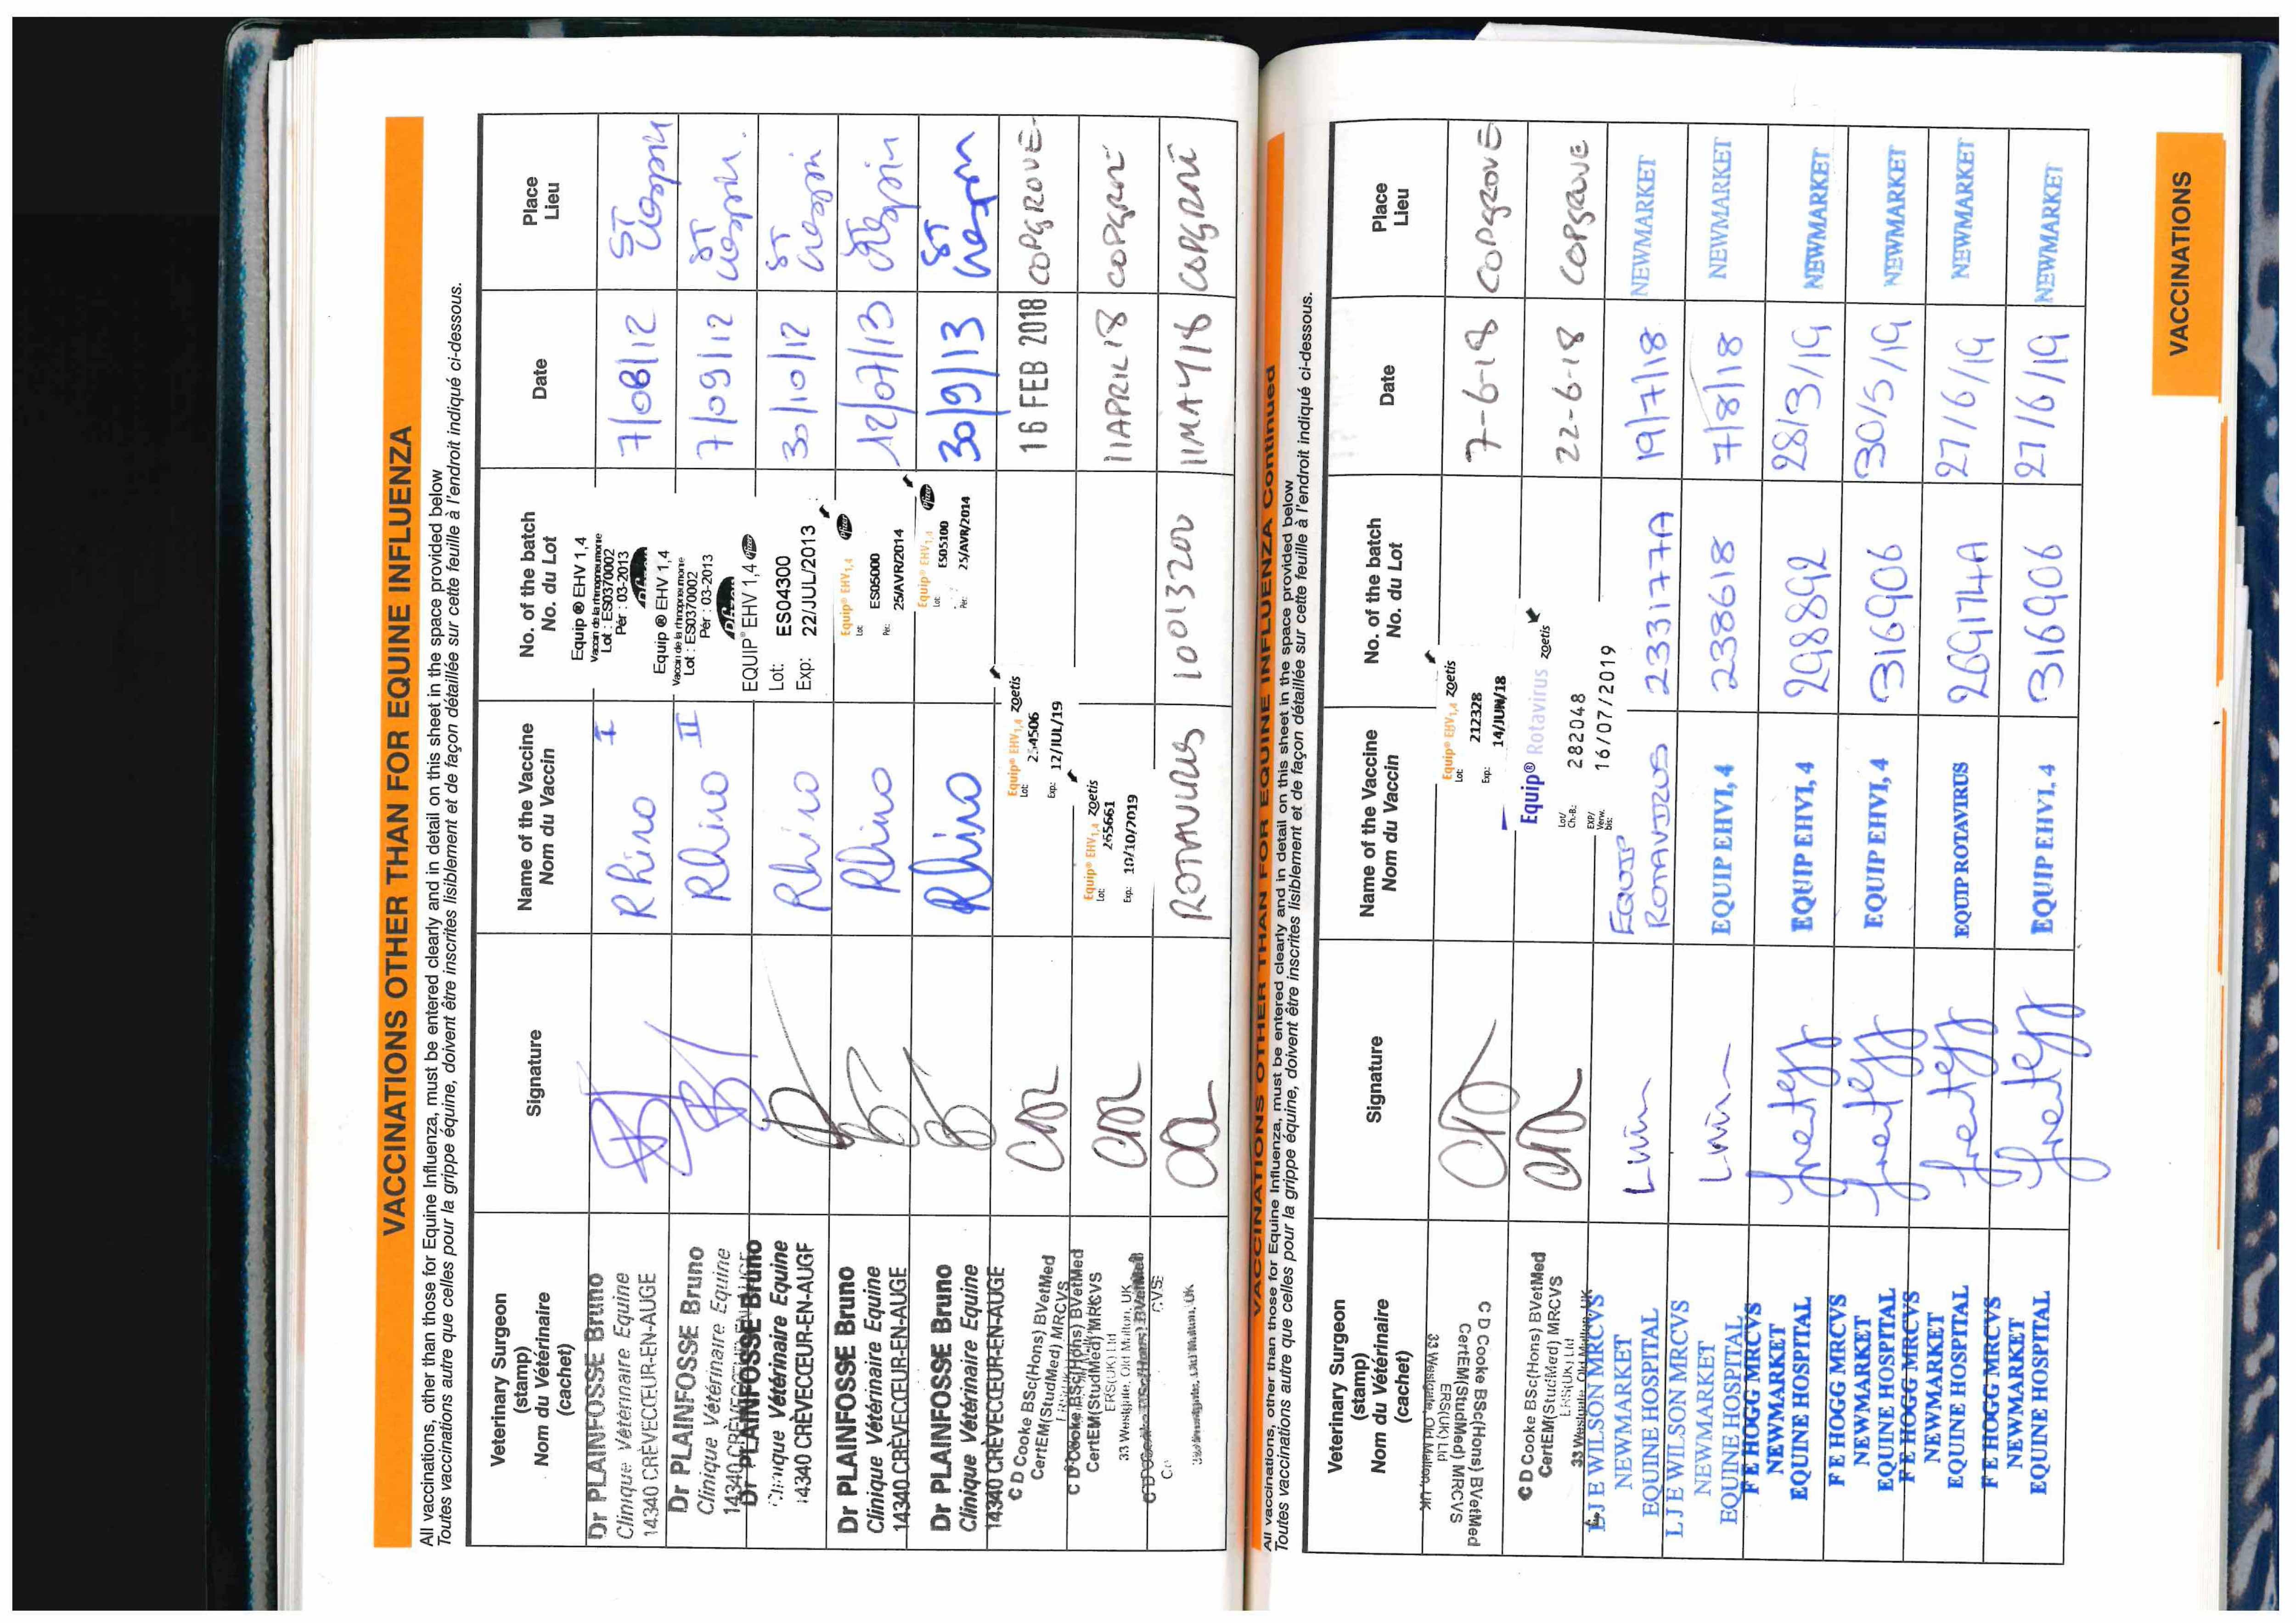 VACCINATIONS OTHER THAN FOR EQUINE INFLUENZA
All vaccinations, other than those for Equine Influenza, must be entered clearly and in detail on this sheet in the space provided below
Toutes vaccinations autre que celles pour la grippe équine, doivent être inscrites lisiblement et de façon détaillée sur cette feuille à l'endroit indiqué ci-dessous.
Veterinary Surgeon
(stamp)
Nom du Vétérinaire
(cachet)
Signature
Name of the Vaccine
Nom du Vaccin
No. of the batch
No. du Lot
Date
Place
Lieu
Dr PLAINFOSSE Bruno
Clinique Vétérinaire Equine
14340 CRÈVECŒUR-EN-AUGE
Rhino I
Equip ® EHV 1,4
Vaccin de la rhinopneumonie
Lot : ES0370002
Pér : 03-2013
Pfizer
7/08/12
ST
Crespin
Dr PLAINFOSSE Bruno
Clinique Vétérinaire Equine
14340 CRÈVECŒUR-EN-AUGE
Rhino II
Equip ® EHV 1,4
Vaccin de la rhinopneumonie
Lot : ES0370002
Pér : 03-2013
Pfizer
7/09/12
ST
Crespin.
Dr PLAINFOSSE Bruno
Clinique Vétérinaire Equine
14340 CRÈVECŒUR-EN-AUGE
Rhino
EQUIP® EHV 1,4 Pfizer
Lot: ES04300
Exp: 22/JUL/2013
30/10/12
ST
Crespin
Dr PLAINFOSSE Bruno
Clinique Vétérinaire Equine
14340 CRÈVECŒUR-EN-AUGE
Rhino
Equip® EHV1,4 Pfizer
Lot: ES05000
Per.: 25/AVR/2014
12/07/13
St Crespin
Dr PLAINFOSSE Bruno
Clinique Vétérinaire Equine
14340 CRÈVECŒUR-EN-AUGE
Rhino
Equip® EHV1,4 Pfizer
Lot: ES05100
Per.: 25/AVR/2014
30/9/13
ST
Crespin
C D Cooke BSc(Hons) BVetMed
CertEM(StudMed) MRCVS
ERS(UK) Ltd
Equip® EHV1,4 zoetis
Lot: 254506
Exp.: 12/JUL/19
16 FEB 2018
COPGROVE
C D Cooke BSc(Hons) BVetMed
CertEM(StudMed) MRCVS
ERS(UK) Ltd
33 Westgate, Old Malton, UK
Equip® EHV1,4 zoetis
Lot: 265661
Exp.: 10/10/2019
11 APRIL 18
COPGROVE
ROTAVIRUS
10013200
11 MAY 18
COPGROVE
VACCINATIONS OTHER THAN FOR EQUINE INFLUENZA Continued
All vaccinations, other than those for Equine Influenza, must be entered clearly and in detail on this sheet in the space provided below
Toutes vaccinations autre que celles pour la grippe équine, doivent être inscrites lisiblement et de façon détaillée sur cette feuille à l'endroit indiqué ci-dessous.
Veterinary Surgeon
(stamp)
Nom du Vétérinaire
(cachet)
Signature
Name of the Vaccine
Nom du Vaccin
No. of the batch
No. du Lot
Date
Place
Lieu
C D Cooke BSc(Hons) BVetMed
CertEM(StudMed) MRCVS
ERS(UK) Ltd
33 Westgate, Old Malton, UK
Equip® EHV1,4 zoetis
Lot: 212328
Exp.: 14/JUN/18
7-6-18
COPGROVE
C D Cooke BSc(Hons) BVetMed
CertEM(StudMed) MRCVS
ERS(UK) Ltd
33 Westgate, Old Malton, UK
Equip® Rotavirus zoetis
Lot/
Ch.-B.: 282048
EXP/
Verw.
bis: 16/07/2019
22-6-18
COPGROVE
L J E WILSON MRCVS
NEWMARKET
EQUINE HOSPITAL
EQUIP
ROTAVIRUS
233177A
19/7/18
NEWMARKET
L J E WILSON MRCVS
NEWMARKET
EQUINE HOSPITAL
EQUIP EHV1,4
238618
7/8/18
NEWMARKET
F E HOGG MRCVS
NEWMARKET
EQUINE HOSPITAL
EQUIP EHV1,4
298892
28/3/19
NEWMARKET
F E HOGG MRCVS
NEWMARKET
EQUINE HOSPITAL
EQUIP EHV1,4
316906
30/5/19
NEWMARKET
F E HOGG MRCVS
NEWMARKET
EQUINE HOSPITAL
EQUIP ROTAVIRUS
269174A
27/6/19
NEWMARKET
F E HOGG MRCVS
NEWMARKET
EQUINE HOSPITAL
EQUIP EHV1,4
316906
27/6/19
NEWMARKET
VACCINATIONS